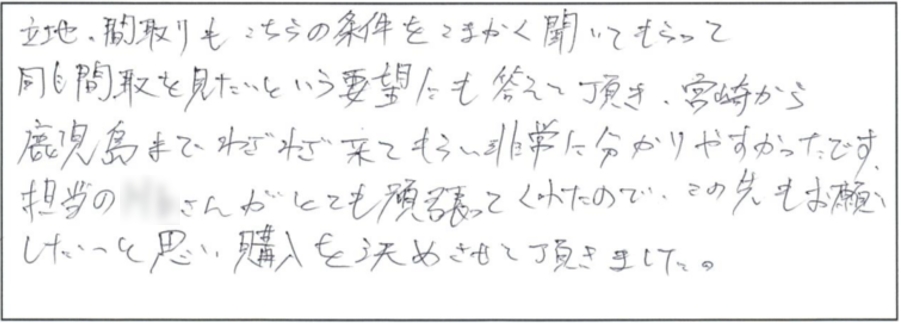 立地、間取りもこちらの条件をこまかく聞いてもらって
同じ間取を見たいという要望にも答えて頂き、宮崎から
鹿児島まで、わざわざ来てもらい非常に分かりやすかったです。
担当の さんがとても頑張ってくれたので、この先もお願い
したいと思い、購入を決めさせて頂きました。